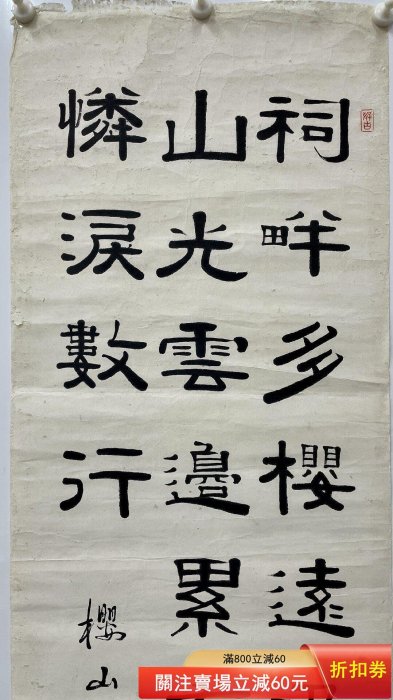 祠畔多櫻遠
山光雲邊累
憐淚數行
櫻山
滿800立減60
關注賣場立減60元
折扣券